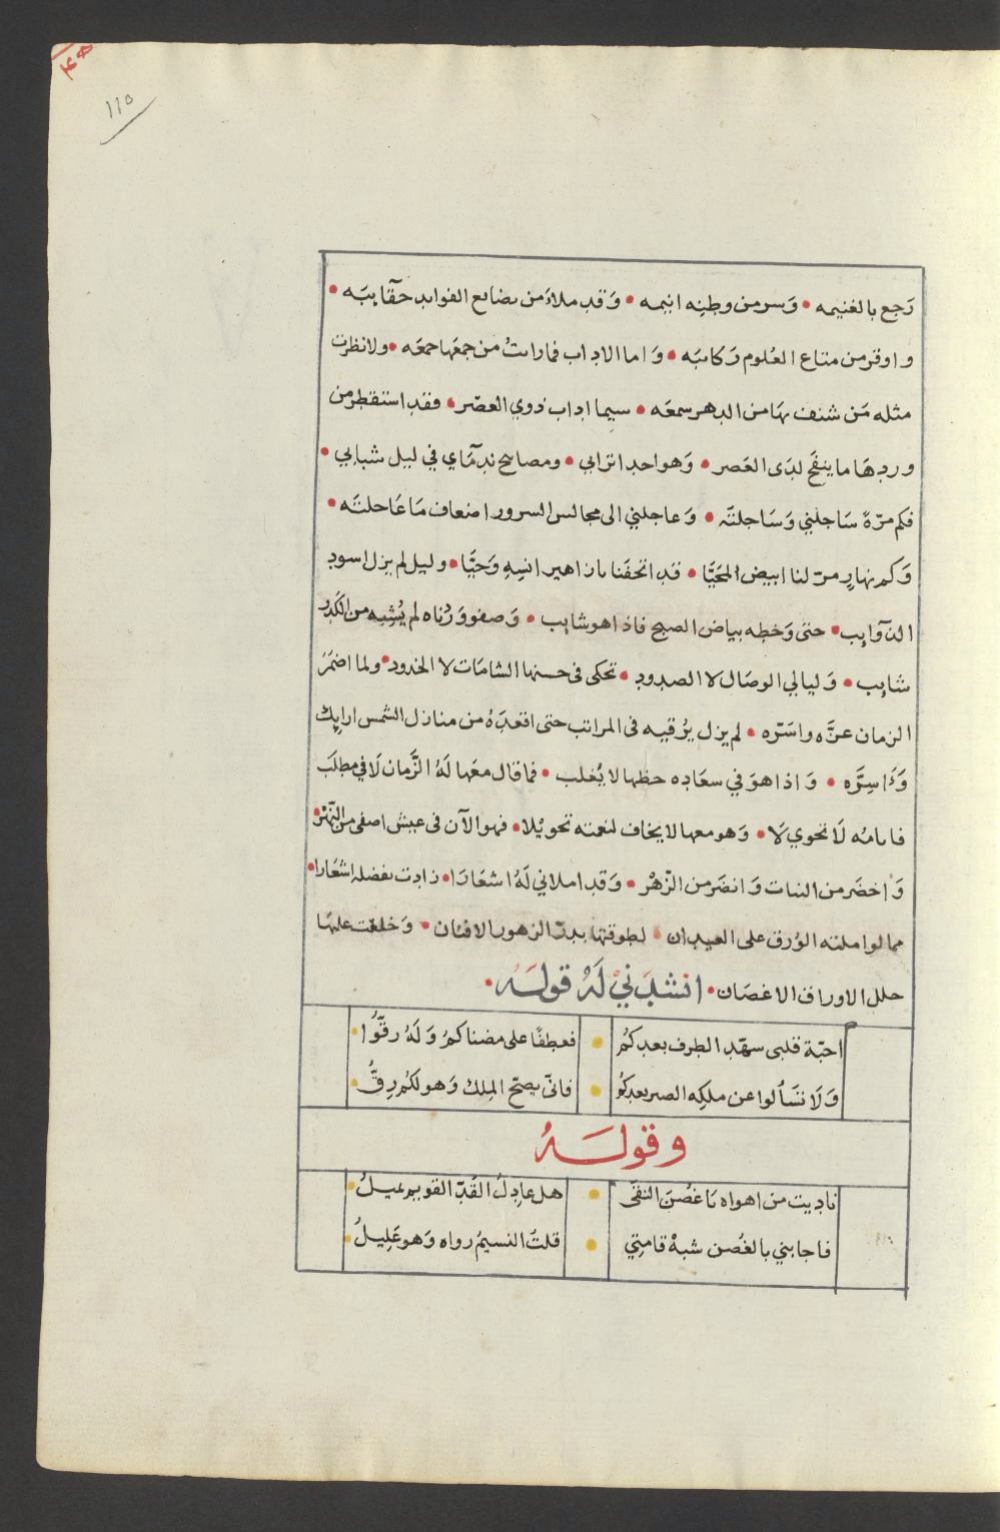 ١١٥
رَجع بالغنيمه • وَسر من وطنِه انيمه • وَقد ملاءَ من بضايع الفوايد حقَآيبَه •
واوقر من متاع العُلوم رَكايبَه • وَاما الاداب فما رايتُ من جمعَها جمعَه • ولا نظرت
مثله مَن شنف بهَا من الدهر سمعَه • سيما اداب ذوي العصْر • فقد استقطر من
وردهَا ما ينفَح لدَى العَصر • وَهو احد اترابي • ومصابيح ندمَآي في ليل شبابي •
فكم مرّةً سَاجلني وَسَاجلتَه • وَعاجلني الى مجالس السرور اضعاف مَا عَاجلتَه •
وَكم نهارٍ مرّ لنا ابيض المحَيَّا • قد اتحفَنا بازاهير انسِهِ وَحيَّا • وليل لم يزل اسود
الذَآوايب • حتى وَخطه بياض الصبح فاذا هو شايب • وَصفو وَرَدناه لم يُشِبه من الكَدر
شايب • وَليالي الوصَال لا الصدود • تحكى فى حسنها الشامَات لا الخدود • ولما اضمَرَ
الزمان عزَّه واسَرّه • لم يزل يُرقيه فى المراتب حتى اقعدَهُ من منازل الشمس ارايك
وَاسِرَّه • وَاذا هوَ في سعَاده حظها لا يُغلب • فما قال معَها لَهُ الزَّمان لَا في مطلَب
فايامُه لَا تحوي لَا • وَهو معها لا يخاف لنعمته تحويْلا • فهو الآن فى عيش اصفى من النّهْر •
وَاخضَر من النبات وَانضَر من الزّهْر • وَقد املاني لَهُ اشعَارَا • زادت بفضله اشعَارا •
مما لو املته الوُرق على العيدان • لطوقتها بدرّ الزهور الافنان • وَخلعَت علَيهَا
حلل الاوراق الاغصَان • انشدَنيْ لَهُ قولَه •
احبّة قلبى سهّد الطرف بعدكمُ • فعطفًا على مضناكمُ وَلَهُ رقّوُا •
وَلَا تسَألوا عن ملكِه الصبر بعدكمُ • فانّى يصحّ المِلك وَهو لكُم رِقُّ •
وقولـه
ناديت من اهواه يَا غصْنَ النقى • هل عادِلُ القَدّ القويم يميلُ •
فاجابني بالغُصن شبهْ قامتِي • قلتُ النسيمُ رواه وَهو عَلِيلُ •